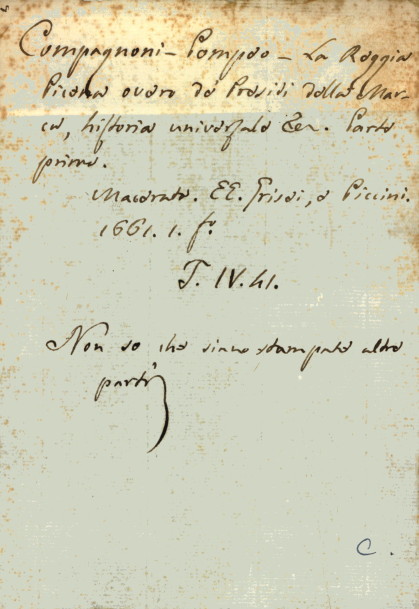 Compagnoni - Pompeo - La Reggia
Picena overo de Presidi della Mar-
ca, historia universale &cr. Parte
prima.
Macerata. EE. Grisei, e Piccini.
1661. 1. fº.
T. IV. 41.
Non so che siano stampate altre
parti
C.